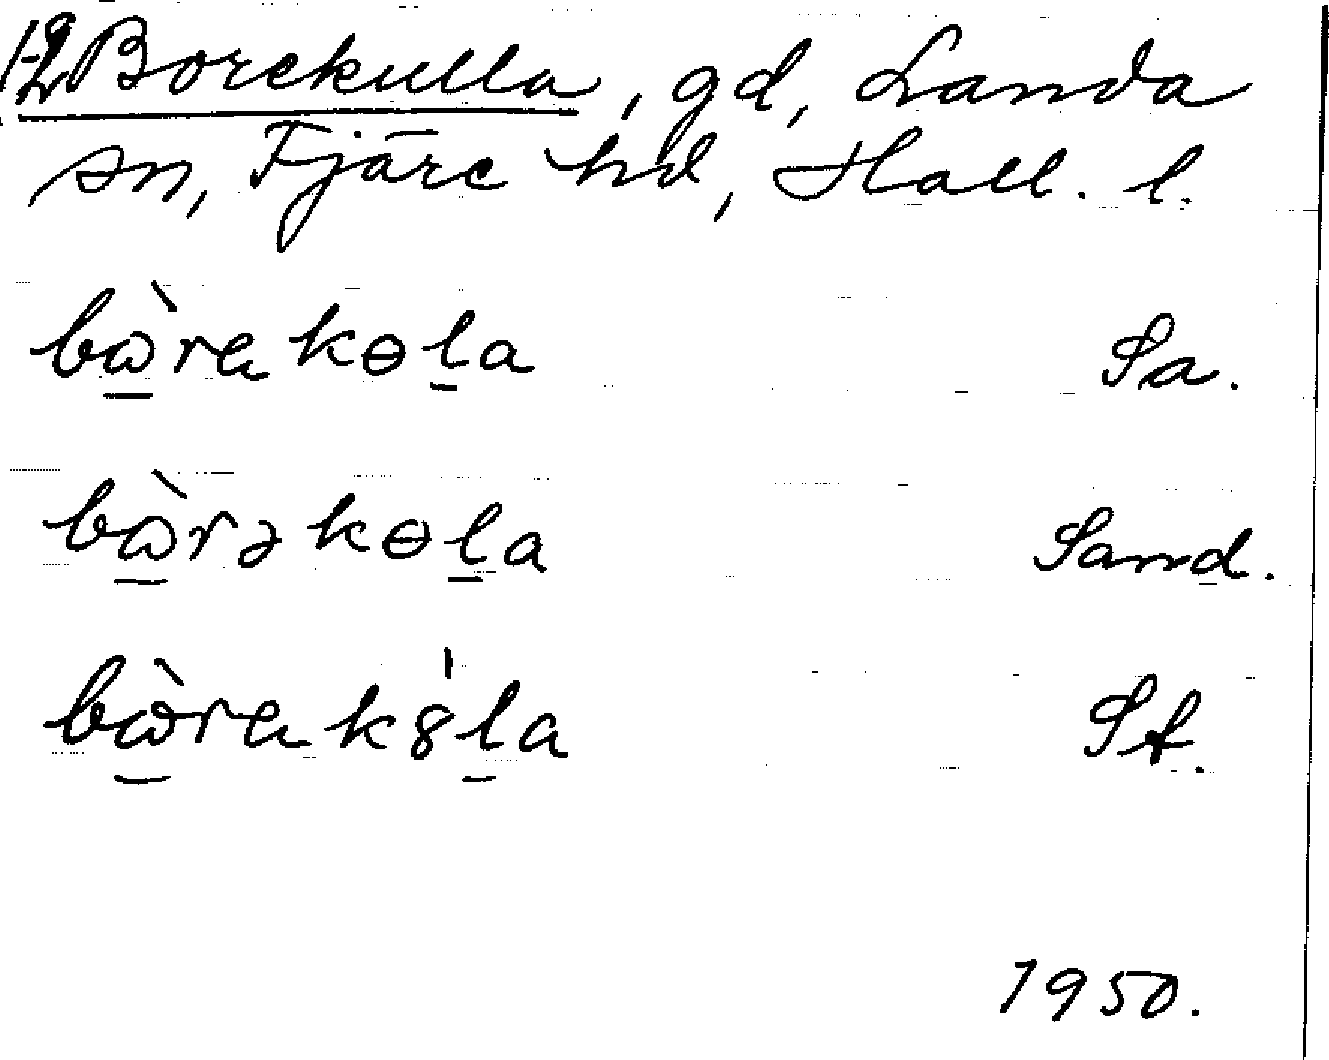 1-2 Borekulla, gd, Landa
sn, Fjäre hd, Hall. l.
bὼ̲ra kɵl̲a Sa.
bὼ̲rə kɵl̲a Sand.
bὼ̲ra k8̍l̲a St.
1950.